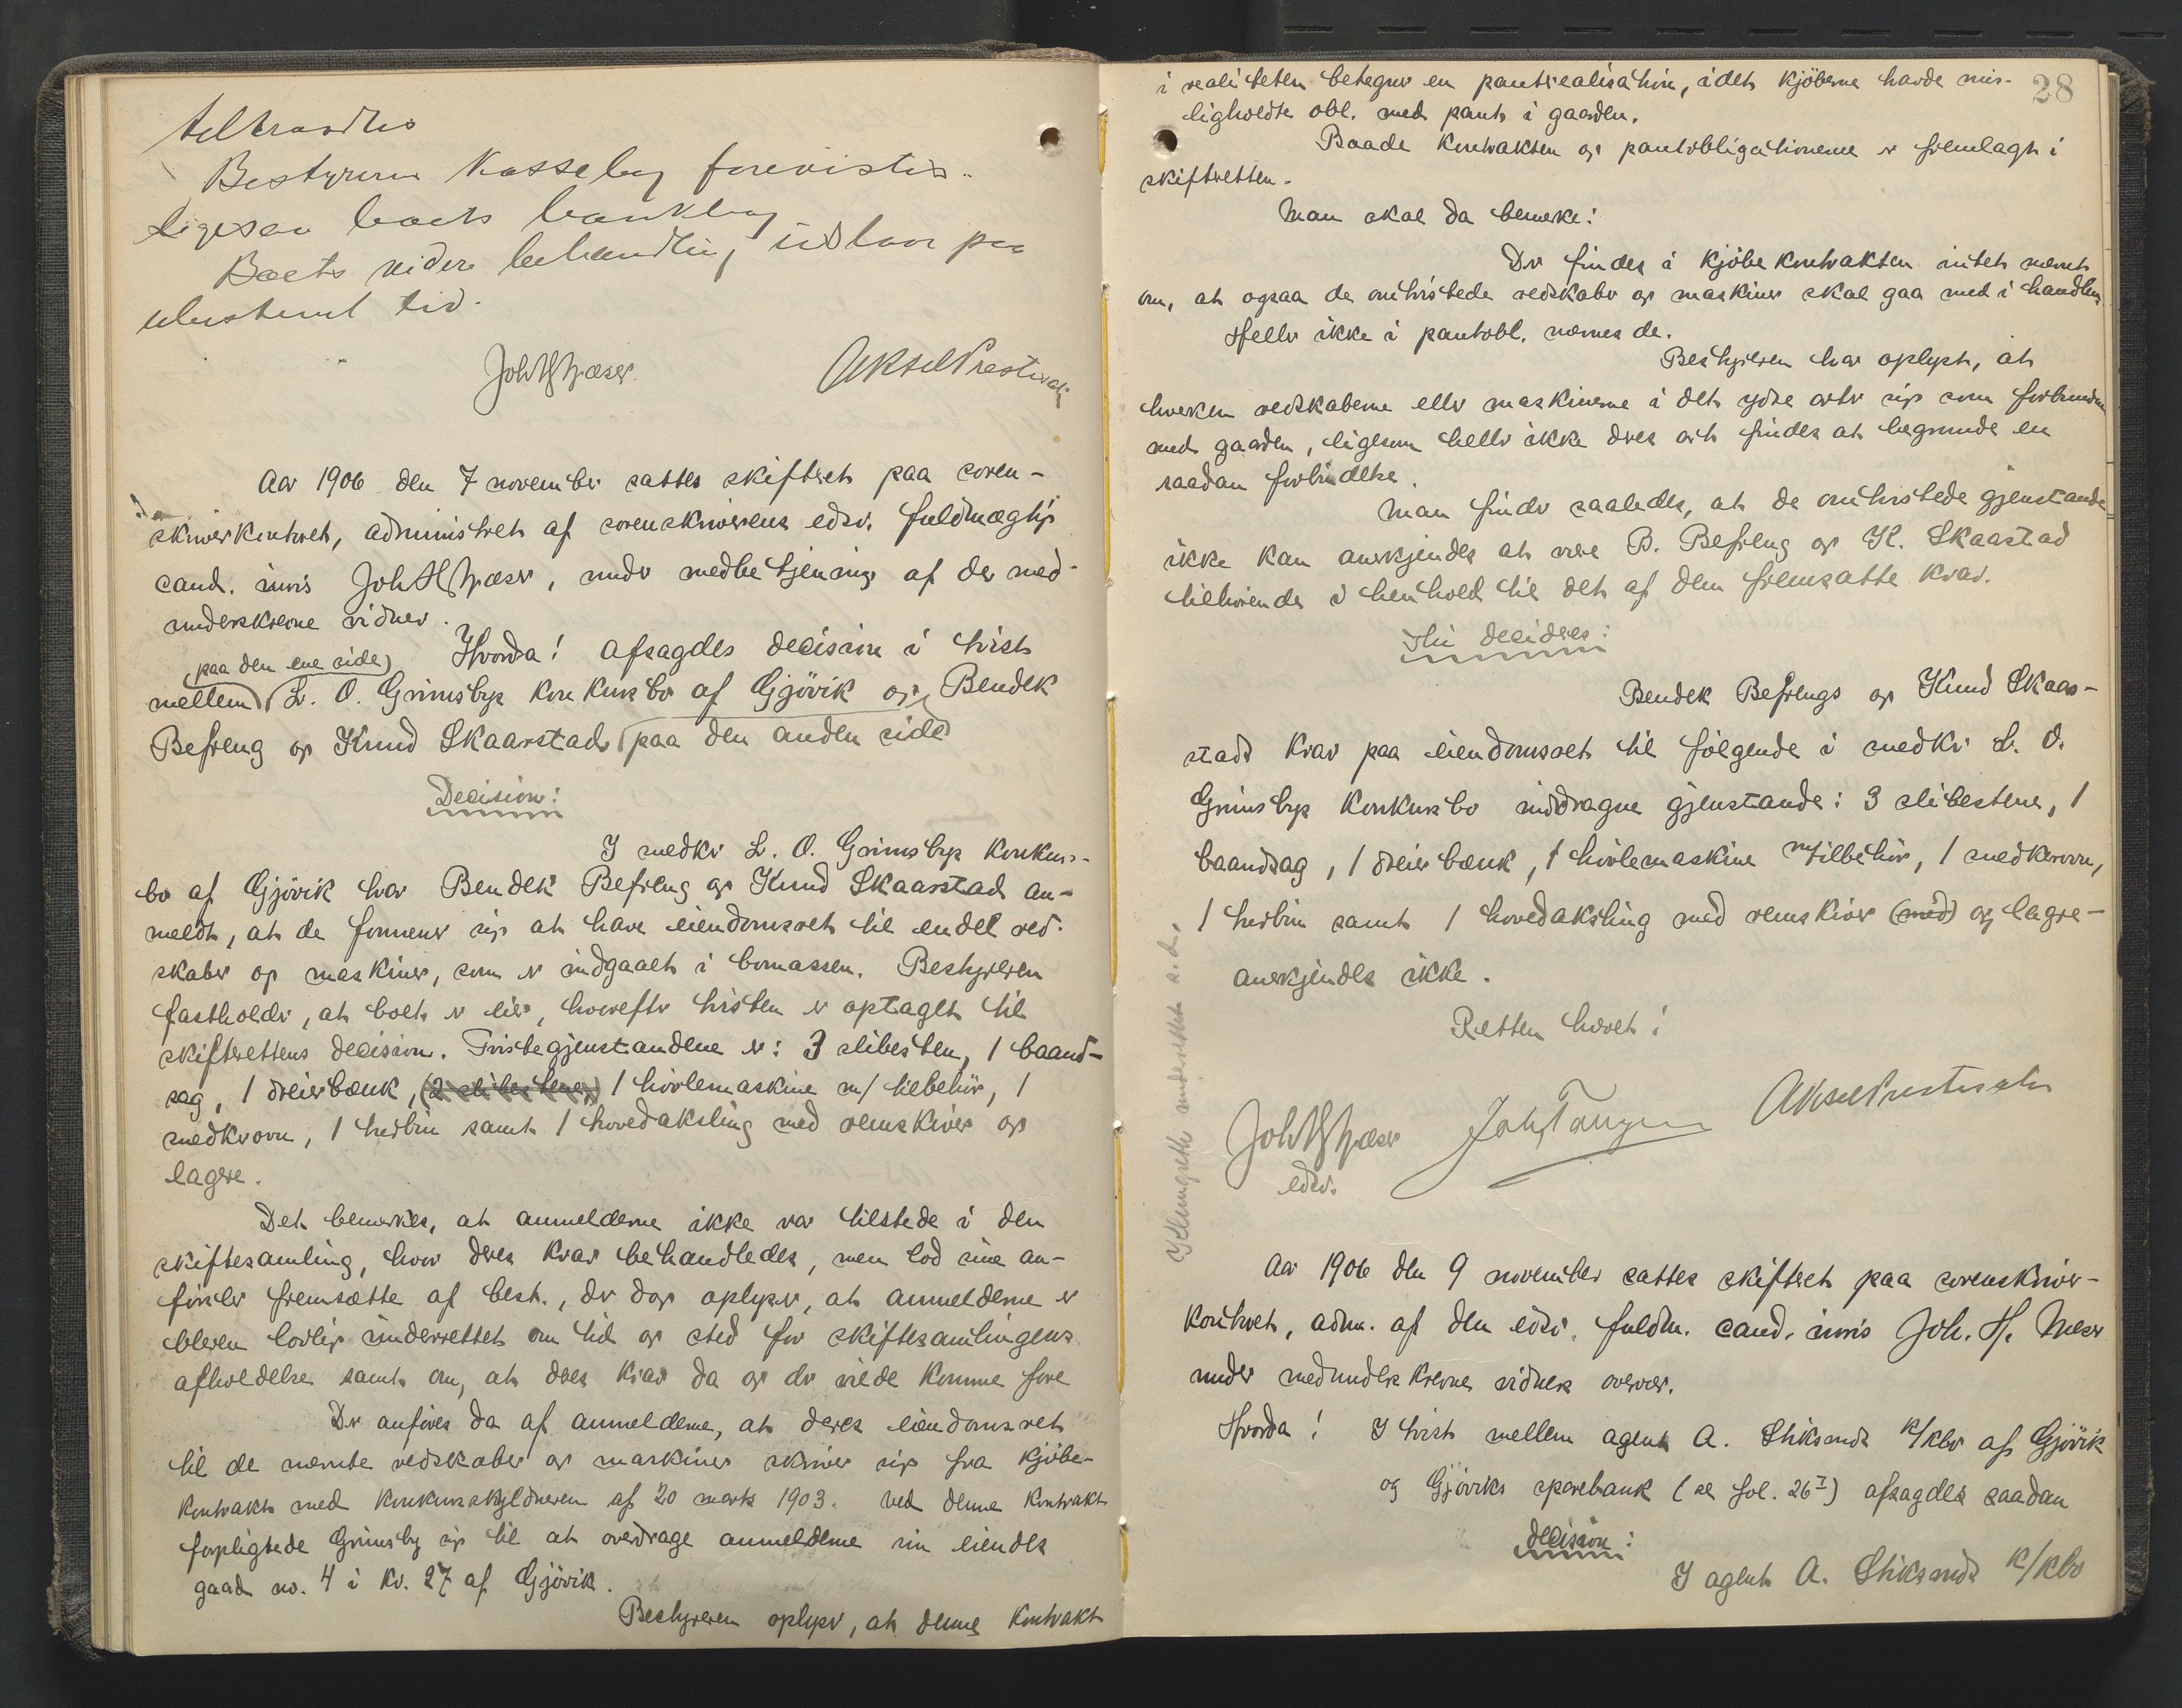 tiltraadtes
Bestyreren kassebog forevistes
ligesaa boets bankbog
Boets videre behandling udstaar paa
ubestemt tid.
Joh H Næser. Aksel Præstesæter
Aar 1906 den 7 november sattes skifteret paa soren-
skriverkontoret, administret af sorenskriverens edsv. fuldmægtig
cand. juris Joh H Næser, under medbetjening af de ned-
underskrevne vidner.
Hvorda! Afsagdes decision i tvist
paa den ene side
mellem L. O. Grimsbys konkursbo af Gjövik og Bendek
Befreng og Knud Skaarstad paa den anden side
Decision:
I snedker L. O. Grimsbys konkurs-
bo af Gjövik har Bendek Befreng og Knud Skaarstad an-
meldt, at de formener sig at have eiendomsret til endel red-
skaber og maskiner, som er indgaaet i bomassen. Bestyreren
fastholder, at boet er eier, hvorefter tvisten er optaget til
skifterettens decision. Tvistegjenstandene er: 3 slibesten, 1 baand-
sag, 1 dreierbænk, (2 slibestene,) 1 hövlemaskine m/ tilbehör, 1
snedkerovn, 1 turbin samt 1 hovedaksling med remskiver og
lagere.
Det bemerkes, at anmelderne ikke var tilstede i den
skiftesamling, hvor deres krav behandledes, men lod sine an-
förseler fremsætte af best., der dog oplyser, at anmelderne er
bleven lovlig underrettet om tid og sted for skiftesamlingens
afholdelse samt om, at deres krav da og der vilde komme fore
Der anföres da af anmelderne, at deres eiendomsret
til de nævnte redskaber og maskiner skriver sig fra kjöbe-
kontrakt med konkursskyldneren af 20 marts 1903. Ved denne kontrakt
forpligtede Grimsby sig til at overdrage anmelderne sin eiendes
gaard no. 4 i kv. 27 af Gjövik.
Bestyreren oplyser, at denne kontrakt
28
i realiteten betegner en pantrealisation, idet kjöberne havde mis-
ligholdte obl. med pant i gaarden.
Baade kontrakten og pantobligationerne er fremlagt i
skifteretten.
Man skal da bemerke:
Der findes i kjöbekontrakten intet nævnt
om, at ogsaa de omtvistede redskaber og maskiner skal gaa med i handlen
Heller ikke i pantobl. nævnes de.
Bestyreren har oplyst, at
hverken redskaberne eller maskinerne i det ydre arter sig som forbunden
med gaarden, ligesom heller ikke deres art findes at begrunde en
saadan forbindelse.
Man finder saaledes, at de omtvistede gjenstande
ikke kan anerkjendes at være B. Befreng og K. Skaastad
tilhörende i henhold til det af dem fremsatte krav.
Thi decideres:
Bendek Befrengs og Knud Skaar-
stads krav paa eiendomsret til fölgende i snedker L. O.
Grimsbys konkursbo inddragne gjenstande: 3 slibestene, 1
baandsag, 1 dreierbænk, 1 hövlemaskine m/tilbehör, 1 snedkerovn,
1 turbin samt 1 hovedaksling med remskiver (med) og lagre-
anerkjendes ikke.
Retten hævet!
Joh H Næser Joh. Tangen Aksel Præstesæter
edsv.
Aar 1906 den 9 november sattes skifteret paa sorenskriver-
kontoret, adm. af den edsv. fuldm. cand. juris Joh. H. Næser
under nedunderskrevne vidners overvær.
Hvorda! I tvist mellem agent A. Stiksruds k/kbo af Gjövik
og Gjöviks sparebank (se fol. 26) afsagdes saadan
decision:
I agent A. Stiksruds k/kbo